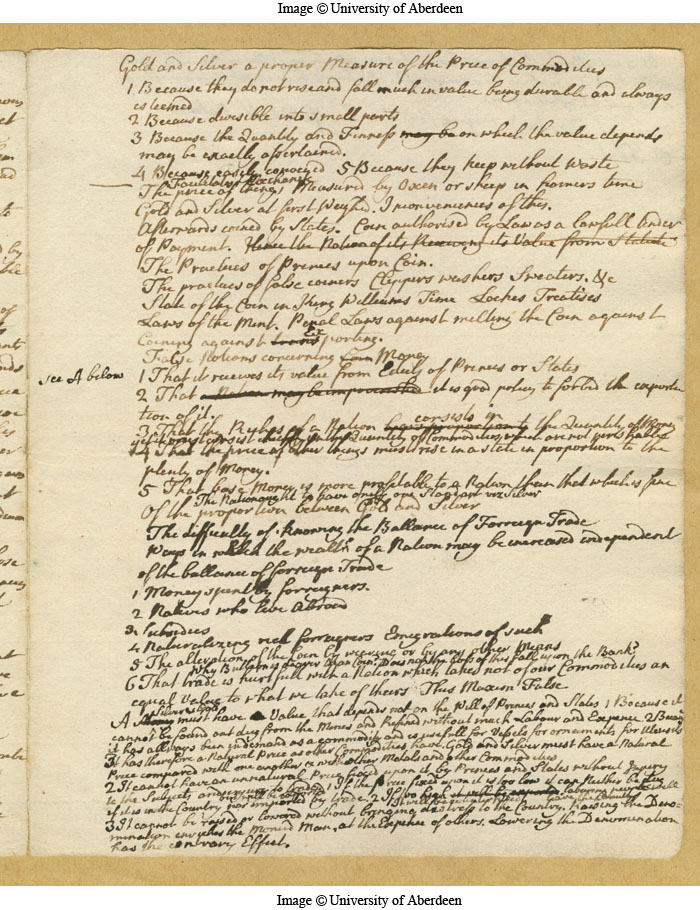 Image © University of Aberdeen
Gold and Silver a proper Measure of the Price of Commodities
1 Because they do not rise and fall much in value being durable and always
esteemed
2 Because divisible into small parts
3 Because the Quantity and Finness may be on which the value depends
may be exactly ascertained.
4 Because easily conveyed 5 Because they keep without waste
Facility of Exchange
The price of things Measured by Oxen or sheep in former time
Gold and Silver at first Weighed. Inconveniences of this.
Afterwards coined by States. Coin authorised by Law as a lawfull tender
of Payment. Hence the Notion of its Receiving its Value from Statute
The Practices of Princes upon Coin.
The practices of false coiners Clippers washers Sweaters. &c
State of the Coin in King Williams Time Lockes Treatises
Laws of the Mint. Penal Laws against melting the Coin against
Coining against exporting.
False Notions concerning Coin Money
see A below
1 That it receives its value from Edicts of Princes or States
2 That it is good policy to forbid the exporta
tion of it
3 That the Riches of a Nation consists in the Quantity of Money
yet it must consist chiefly in the Quantity of Commodities which are not perishable
4 That the price of other things must rise in a state in proportion to the
plenty of Money.
5 That base Money is more profitable to a Nation than that which is fine
The Nation ought to have only one Standart viz Silver
Of the proportion between Gold and Silver
The difficulty of knowing the Ballance of Forreign Trade
Ways in which the wealth of a Nation may be increased independent
of the ballance of forreign Trade
1 Money spent by forreigners.
2 Natives who live Abroad
3 Subsidies
4 Naturalizing rich forreigners Emigrations of such
5 The alteration of the Coin by wearing or by any other Means
Why Bullion is dearer than Coin. Does not the loss of this fall upon the Bank?
6 That trade is hurtfull with a Nation which takes not of our Commodities an
equal Value to what we take of theirs This Maxim False
Silver & Gold
A Money must have a Value that depends not on the Will of Princes and States 1 Because it
cannot be found out dug from the Mines and Refined without much Labour and Expence 2 Because
it has allways been in demand as a commodity and is usefull for Vessels for ornaments for Utensils
3 It has therefore a Natural Price as other Commodities have. Gold and Silver must have a Natural
Price compared with one another & with other Metals and other Commodities
2 It cannot have an unnatural Price fixed upon it by Princes and States without Injury
to the Subjects and injury to trade. 1 If the price fixed upon it is too low it can neither be dug
if it is in the Country nor imported by trade. 2 If too high
3 It cannot be raised or lowered without bringing distress to the Country, raising the Deno=
mination enriches the Monied Man, at the Expence of others. Lowering the Denomination
has the contrary Effect.
Image © University of Aberdeen